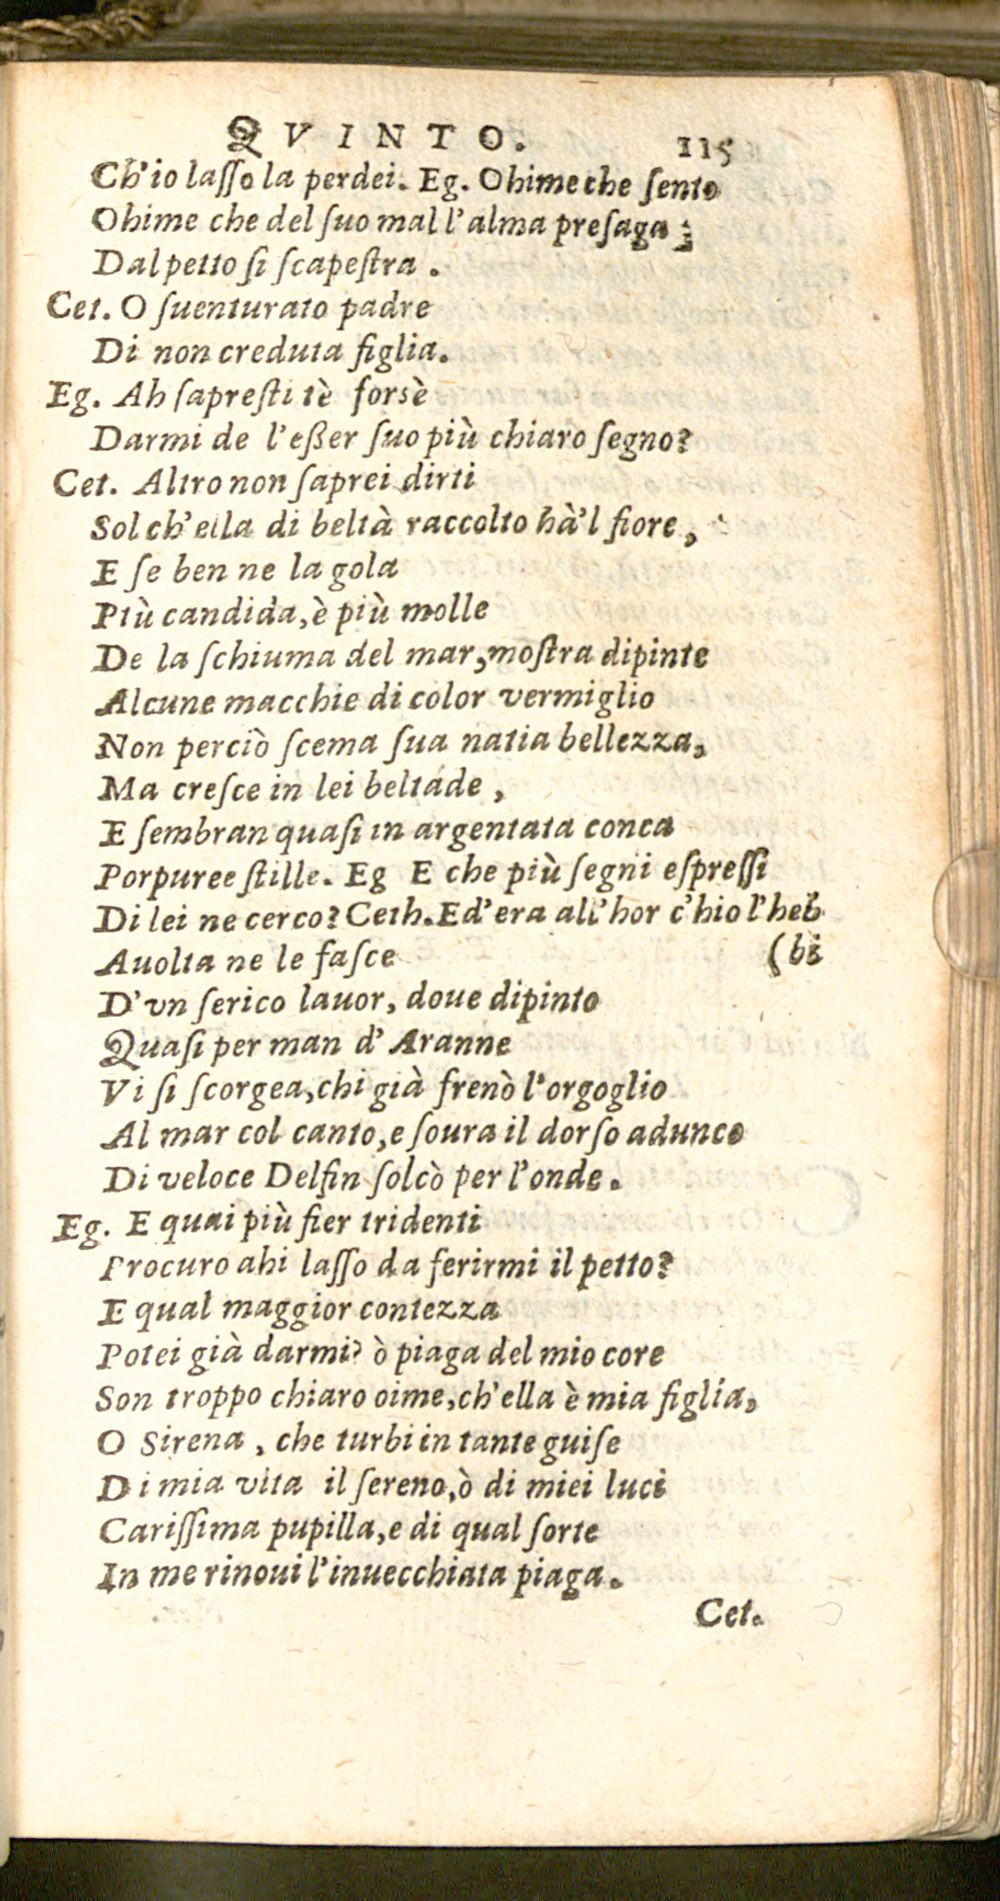 QVINTO. 115
Ch'io laſſo la perdei. Eg. Ohime che ſento
Ohime che del ſuo mal l'alma preſaga;
Dal petto ſi ſcapeſtra.
Cet. O ſuenturato padre
Di non creduta figlia.
Eg. Ah ſapreſti tè forsè
Darmi de l'eßer ſuo più chiaro ſegno?
Cet. Altro non ſaprei dirti
Sol ch'ella di beltà raccolto hà'l fiore,
E ſe ben ne la gola
Più candida, è più molle
De la ſchiuma del mar, moſtra dipinte
Alcune macchie di color vermiglio
Non perciò ſcema ſua natia bellezza,
Ma creſce in lei beltade,
E ſembran quaſi in argentata conca
Porpuree ſtille. Eg E che più ſegni eſpreſſi
Di lei ne cerco? Ceth. Ed'era all'hor c'hio l'heb
Auolta ne le faſce (bi
D'vn ſerico lauor, doue dipinto
Quaſi per man d'Aranne
Vi ſi ſcorgea, chi già frenò l'orgoglio
Al mar col canto, e ſoura il dorſo adunco
Di veloce Delfin ſolcò per l'onde.
Eg. E quai più fier tridenti
Procuro ahi laſſo da ferirmi il petto?
E qual maggior contezza
Potei già darmi? ò piaga del mio core
Son troppo chiaro oime, ch'ella è mia figlia,
O Sirena, che turbi in tante guiſe
Di mia vita il ſereno, ò di miei luci
Cariſſima pupilla, e di qual ſorte
In me rinoui l'inuecchiata piaga.
Cet.